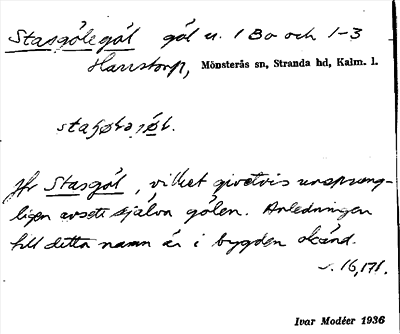 Stasgölegöl göl u. 1 Bo och 1-3
Harrstorp, Mönsterås sn, Stranda hd, Kalm. l.
Jfr Stasgöl, vilket givetvis ursprung-
ligen avsett själva gölen. Anledningen
till detta namn är i bygden okänd.
16,171.
Ivar Modéer 1936